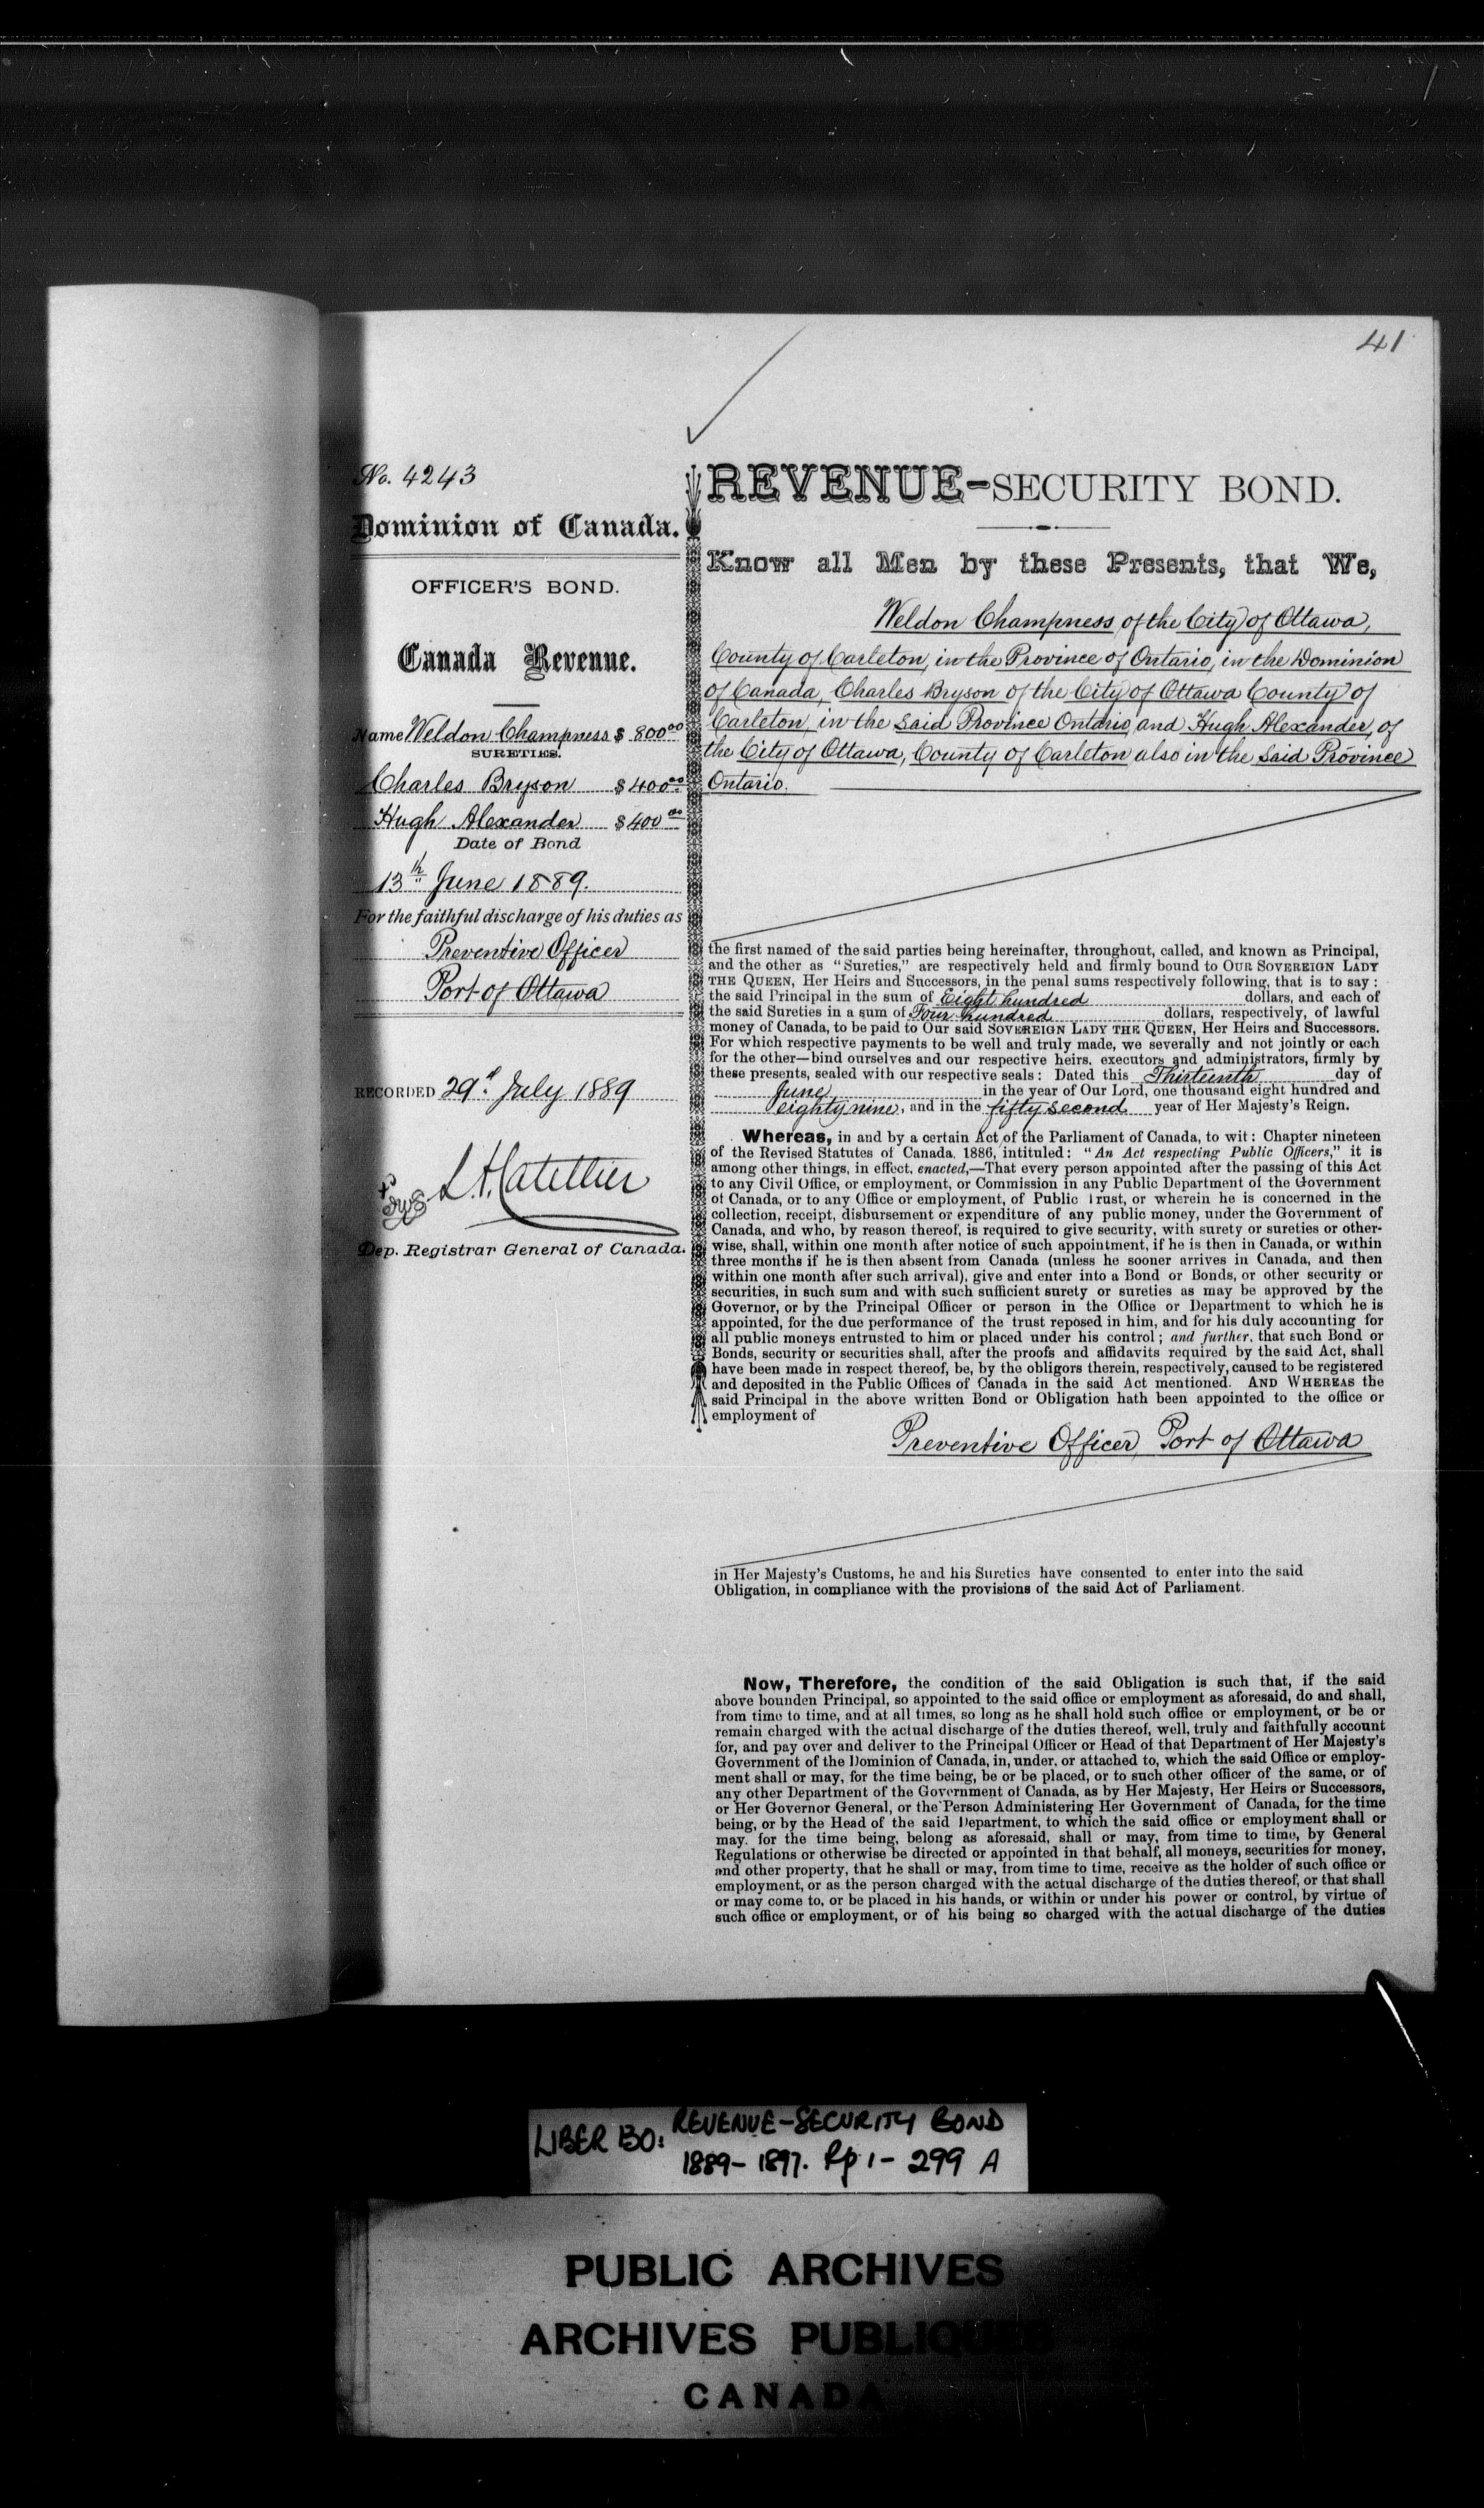 41
No. 4243
Dominion of Canada.
OFFICER'S BOND.
Canada Revenue.
Name Weldon Champness $ 800 00
SURETIES.
Charles Bryson $ 400 00
Hugh Alexander $ 400 00
Date of Bond
13th June 1889.
For the faithful discharge of his duties as
Preventive Officer
Port of Ottawa
RECORDED 29th July 1889
L.A. Catellier
Dep. Registrar General of Canada.
REVENUE-SECURITY BOND.
Know all Men by these Presents, that We,
Weldon Champness of the City of Ottawa,
County of Carleton, in the Province of Ontario, in the Dominion
of Canada, Charles Bryson of the City of Ottawa County of
Carleton, in the said Province Ontario, and Hugh Alexander, of
the City of Ottawa, County of Carleton also in the said Province
Ontario.
the first named of the said parties being hereinafter, throughout, called, and known as Principal,
and the other as "Sureties," are respectively held and firmly bound to OUR SOVEREIGN LADY
THE QUEEN, Her Heirs and Successors, in the penal sums respectively following, that is to say :
the said Principal in the sum of Eight hundred dollars, and each of
the said Sureties in a sum of Four hundred dollars, respectively, of lawful
money of Canada, to be paid to Our said SOVEREIGN LADY THE QUEEN, Her Heirs and Successors.
For which respective payments to be well and truly made, we severally and not jointly or each
for the other—bind ourselves and our respective heirs, executors and administrators, firmly by
these presents, sealed with our respective seals : Dated this Thirteenth day of
June in the year of Our Lord, one thousand eight hundred and
eighty nine, and in the fifty second year of Her Majesty's Reign.
Whereas, in and by a certain Act of the Parliament of Canada, to wit : Chapter nineteen
of the Revised Statutes of Canada, 1886, intituled : "An Act respecting Public Officers," it is
among other things, in effect, enacted,—That every person appointed after the passing of this Act
to any Civil Office, or employment, or Commission in any Public Department of the Government
of Canada, or to any Office or employment, of Public Trust, or wherein he is concerned in the
collection, receipt, disbursement or expenditure of any public money, under the Government of
Canada, and who, by reason thereof, is required to give security, with surety or sureties or other-
wise, shall, within one month after notice of such appointment, if he is then in Canada, or within
three months if he is then absent from Canada (unless he sooner arrives in Canada, and then
within one month after such arrival), give and enter into a Bond or Bonds, or other security or
securities, in such sum and with such sufficient surety or sureties as may be approved by the
Governor, or by the Principal Officer or person in the Office or Department to which he is
appointed, for the due performance of the trust reposed in him, and for his duly accounting for
all public moneys entrusted to him or placed under his control ; and further, that such Bond or
Bonds, security or securities shall, after the proofs and affidavits required by the said Act, shall
have been made in respect thereof, be, by the obligors therein, respectively, caused to be registered
and deposited in the Public Offices of Canada in the said Act mentioned. AND WHEREAS the
said Principal in the above written Bond or Obligation hath been appointed to the office or
employment of
Preventive Officer, Port of Ottawa
in Her Majesty's Customs, he and his Sureties have consented to enter into the said
Obligation, in compliance with the provisions of the said Act of Parliament.
Now, Therefore, the condition of the said Obligation is such that, if the said
above bounden Principal, so appointed to the said office or employment as aforesaid, do and shall,
from time to time, and at all times, so long as he shall hold such office or employment, or be or
remain charged with the actual discharge of the duties thereof, well, truly and faithfully account
for, and pay over and deliver to the Principal Officer or Head of that Department of Her Majesty's
Government of the Dominion of Canada, in, under, or attached to, which the said Office or employ-
ment shall or may, for the time being, be or be placed, or to such other officer of the same, or of
any other Department of the Government of Canada, as by Her Majesty, Her Heirs or Successors,
or Her Governor General, or the Person Administering Her Government of Canada, for the time
being, or by the Head of the said Department, to which the said office or employment shall or
may. for the time being, belong as aforesaid, shall or may, from time to time, by General
Regulations or otherwise be directed or appointed in that behalf, all moneys, securities for money,
and other property, that he shall or may, from time to time, receive as the holder of such office or
employment, or as the person charged with the actual discharge of the duties thereof, or that shall
or may come to, or be placed in his hands, or within or under his power or control, by virtue of
such office or employment, or of his being so charged with the actual discharge of the duties
LIBER BO: REVENUE-SECURITY BOND
1889-1897. Pp 1-299 A
PUBLIC ARCHIVES
ARCHIVES PUBLIQUES
CANADA